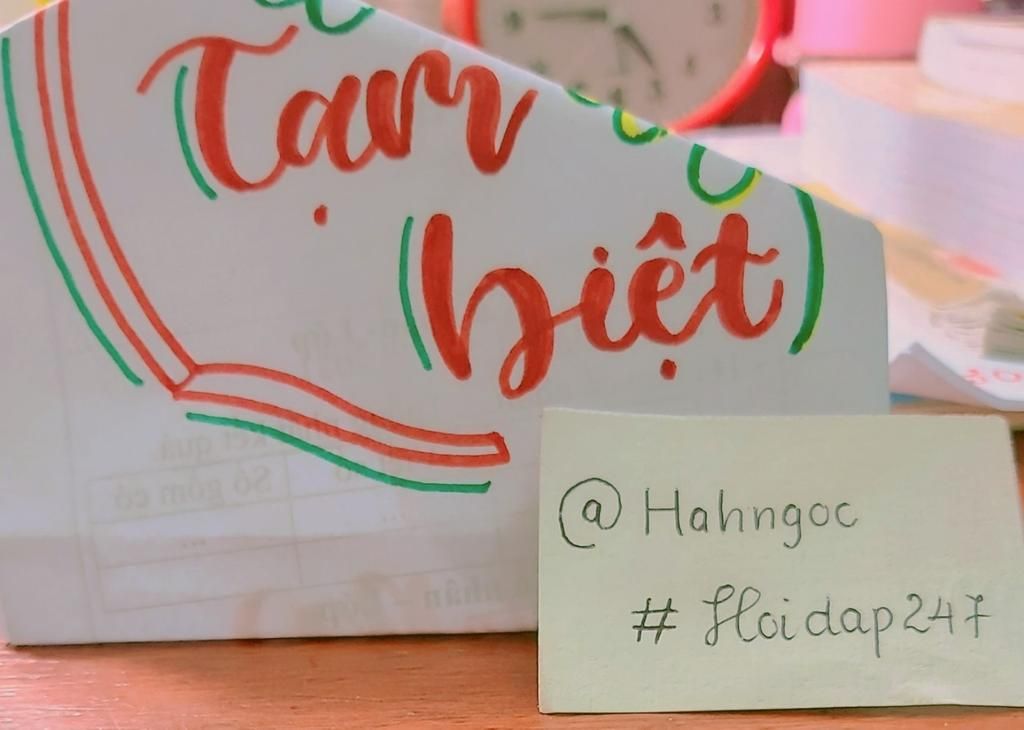 Tạm
biệt
@Hahngoc
#Hoidap247